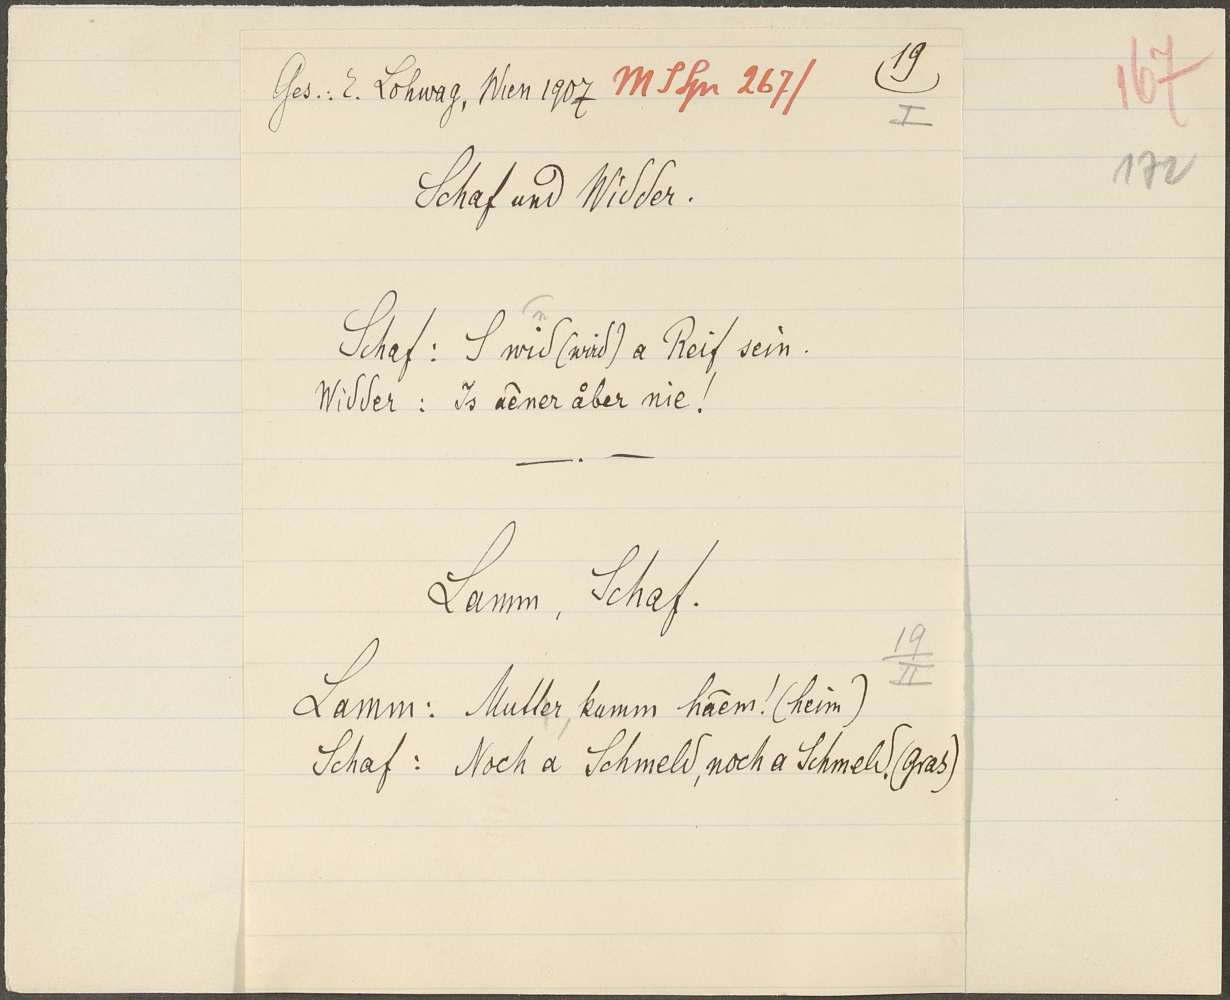 Ges.: E. Lohwag, Wien 1907 M S Spr 267/
19
I
167
172
Schaf und Widder.
Schaf: S wid (wird) a Reif sein.
Widder: Is aēner åber nie!
Lamm, Schaf.
19
II
Lamm: Mutter, kumm hāem! (heim)
Schaf: Noch a Schmeld, noch a Schmeld. (Gras)